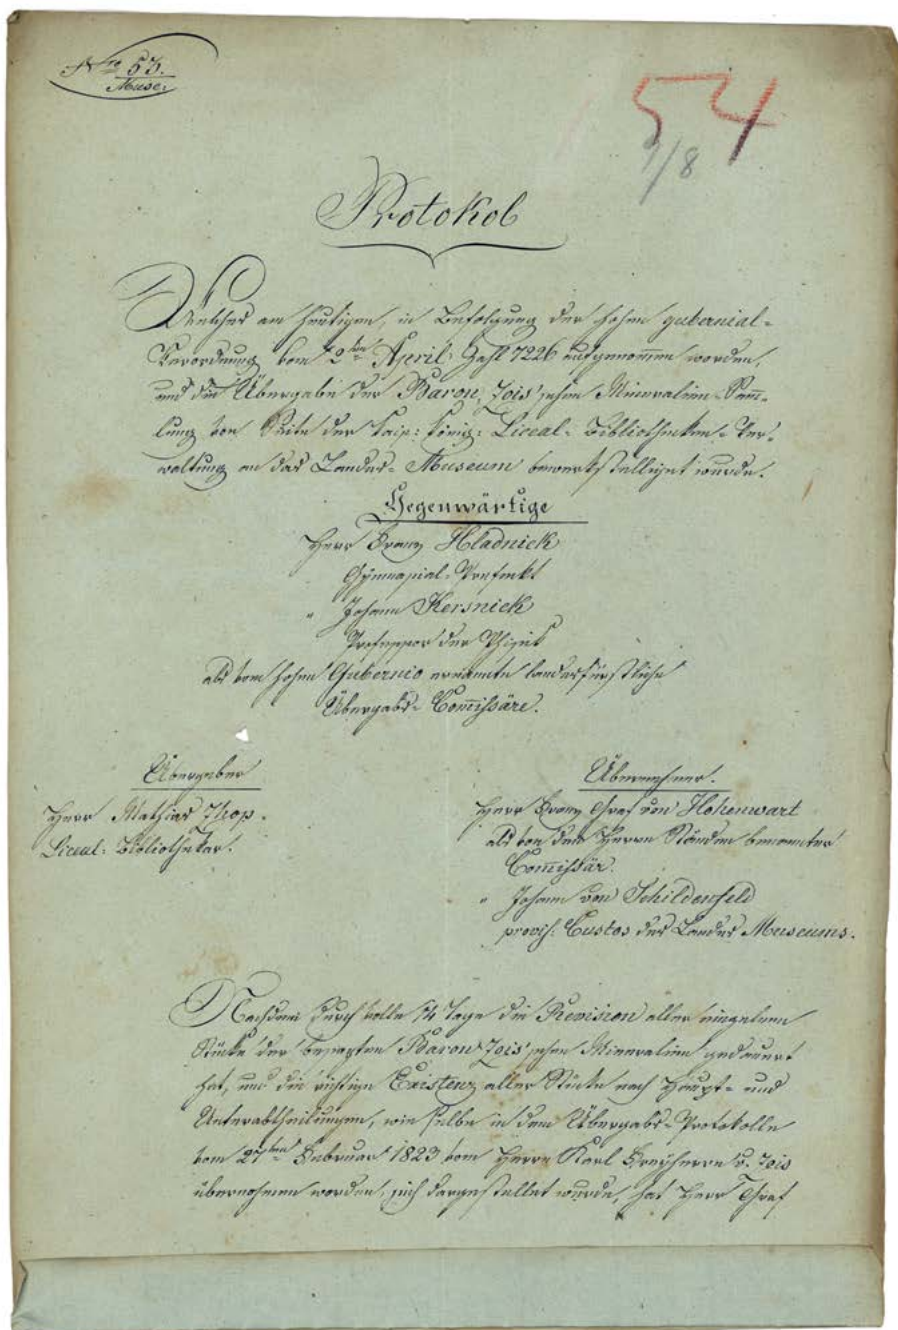 Nro 53.
Muse:
54
1/8
Protokol
Welches am heutigen, in Befolgung der hohen gubernial-
Verordnung vom 2ten April: Zahl 7226 aufgenommen worden,
und die Übergabe der Baron Zois'schen Mineralien-Samm-
lung von Seite der kais: königl: Liceal-Bibliotheken-Ver-
waltung an das Landes-Museum bewerkstelliget wurde.
Gegenwärtige
Herr Franz Hladnick
Gymnasial-Prefeckt
" Johann Kersnick
Professor der Phisik
als vom hohen Gubernio ernannte landesfürstliche
Übergabs-Commißäre.
Übergeber
Herr Mathias Zhop.
Liceal: Bibliothekar.
Übernehmer.
Herr Franz Graf von Hohenwart
als von den Herrn Ständen benannter
Commißär.
" Johann von Schildenfeld
provis: Custos des Landes Museums.
Nachdem durch volle 14 Tage die Revision aller eingelnen
Stücke der besagten Baron Zois'schen Mineralien gedauert
hat, und die richtige Existenz aller Stücke nach Haupt- und
Unterabtheilungen, wie selbe in dem Übergabs-Protokolle
vom 27ten Februar 1823 vom Herrn Karl Freyherrn v. Zois
übernohmen worden, sich dargestellet wurde, hat Herr Graf